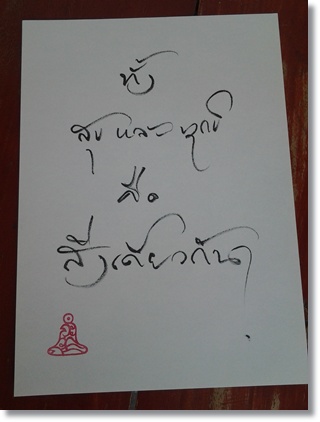 ทั้ง
สุข และ ทุกข์
คือ
สิ่งเดียวกัน